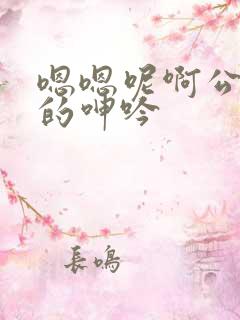 嗯嗯呢啊公
的呻吟
長鳴